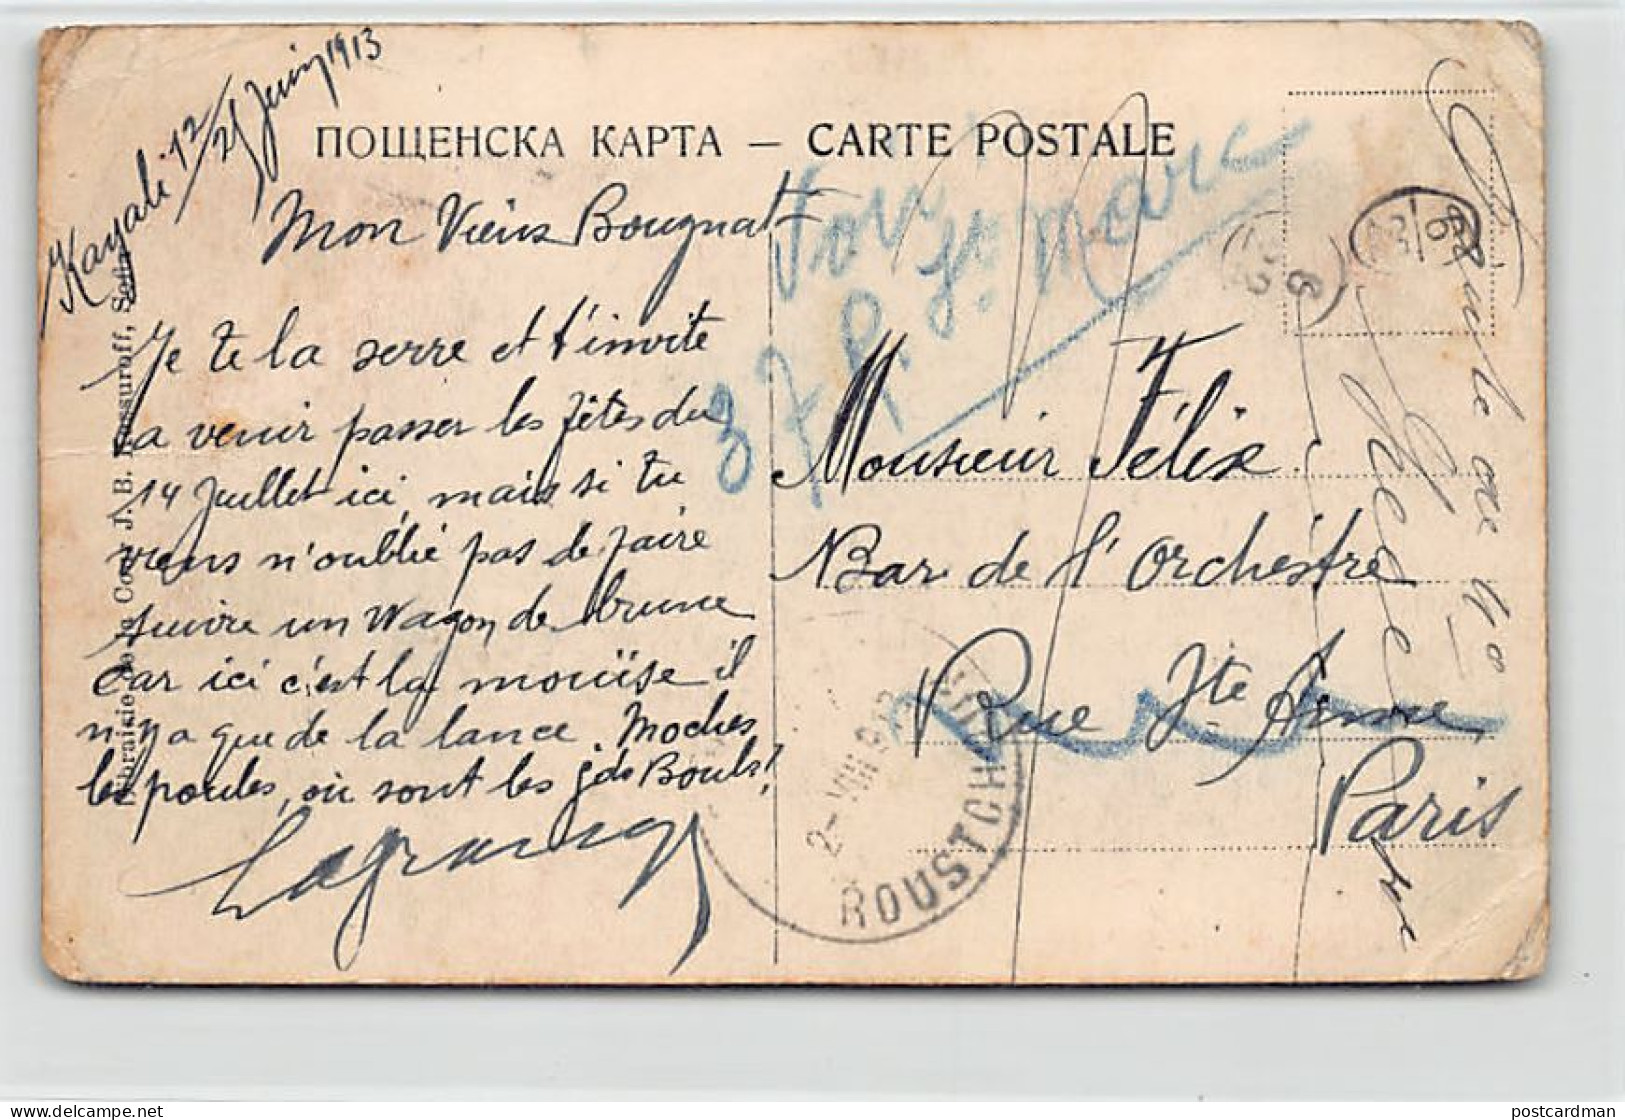 Kayali 12/25 Juin 1913
ПОЩЕНСКА КАРТА — CARTE POSTALE
Mon Vieux Bougnat
Je te la serre et t'invite
a venir passer les fêtes du
14 Juillet ici, mais si tu
viens n'oublié pas de faire
suivre un Wagon de brune
car ici c'est la mouïse il
n'y a que de la lance. Moches
les poules, où sont les gds Bouls!
Lagrange
Librairie J. B. Sofia
Voir
St. Marc
37 R.
Monsieur Félix.
Bar de l'Orchéstre
Rue Ste Anne
Paris
ROUSTCH
2-VIII 913
postcardman